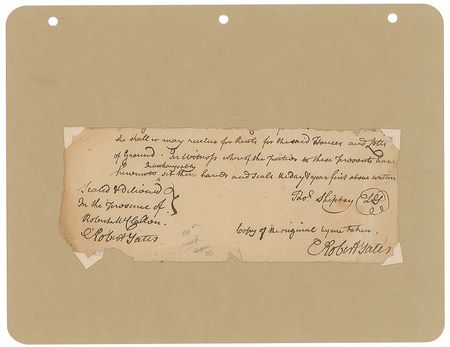 he shall or may receive for Rents for the said Houses and Lotts
of Ground. In Witness whereof the Parties to these presents have
Interchangeably
hereunto set their hands and seals the day & year first above written
Sealed & Delivered
In the presence of
Thos. Shipboy
Robert Mc
Robert Yates
Copy of the original by me taken.
Robert Yates